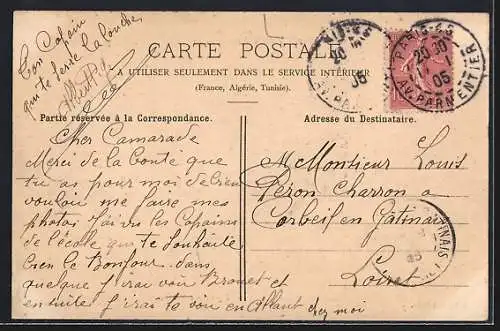 Ton Copain
qui te serre la louche
Albert
CARTE POSTALE
A UTILISER SEULEMENT DANS LE SERVICE INTÉRIEUR
(France, Algérie, Tunisie).
Partie réservée à la Correspondance.
Adresse du Destinataire.
PARIS-43
20 30
05
AV. PARMENTIER
Cher Camarade
Merci de la bonté que
tu as pour moi de bien
vouloir me faire mes
photos J'ai vu les Copains
de l'école qui te souhaite
bien le Bonjour dans
quelque j'irai voir Brouet et
ensuite j'irai te voir en allant chez moi
Monsieur Louis
Peron Charron a
Corbeil en Gatinais
Loiret